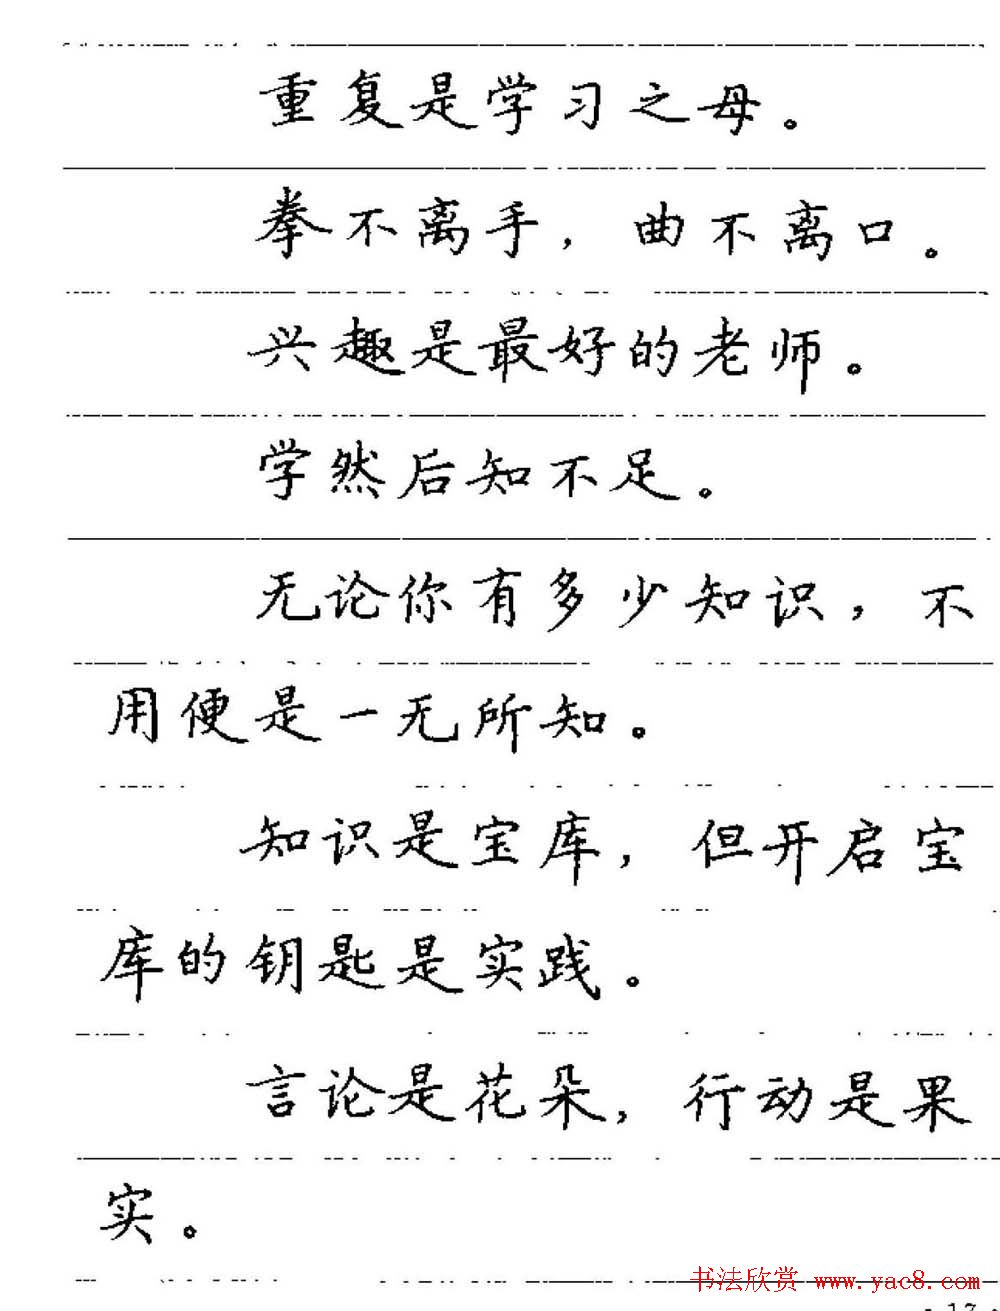 重复是学习之母。
拳不离手，曲不离口。
兴趣是最好的老师。
学然后知不足。
无论你有多少知识，不
用便是一无所知。
知识是宝库，但开启宝
库的钥匙是实践。
言论是花朵，行动是果
实。
书法欣赏 www.yac8.com